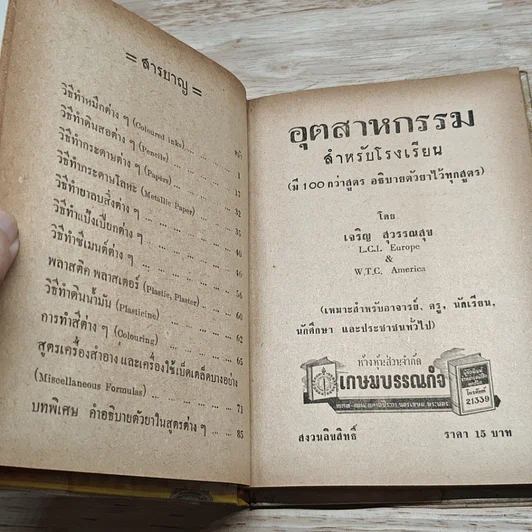 = สารบาญ =
หน้า
วิธีทำหมึกต่าง ๆ (Coloured inks) ... 1
วิธีทำดินสอต่าง ๆ (Pencils) ... ... 12
วิธีทำกระดาษต่าง ๆ (Papers) ... ... 17
วิธีทำกระดาษโลหะ (Metallic Paper) ... 32
วิธีทำยาลบสิ่งต่าง ๆ ... ... 35
วิธีทำแป้งเปียกต่าง ๆ ... ... 40
วิธีทำซีเมนต์ต่าง ๆ ... ... 46
พลาสติค พลาสเตอร์ (Plastic, Plaster) ... 56
วิธีทำดินน้ำมัน (Plasticine) ... ... 60
การทำสีต่าง ๆ (Colouring) ... ... 62
สูตรเครื่องสำอาง และเครื่องใช้เบ็ดเตล็ดบางอย่าง 65
(Miscellaneous Formulas) ... ... 71
บทพิเศษ คำอธิบายตัวยาในสูตรต่าง ๆ ... 85
อุตสาหกรรม
สำหรับโรงเรียน
(มี 100 กว่าสูตร อธิบายตัวยาไว้ทุกสูตร)
โดย
เจริญ สุวรรณสุข
L.C.I. Europe
&
W.T.C. America
(เหมาะสำหรับอาจารย์, ครู, นักเรียน,
นักศึกษา และประชาชนทั่วไป)
ห้างหุ้นส่วนจำกัด
เกษมบรรณกิจ
โทรศัพท์
21339
สงวนลิขสิทธิ์ ราคา 15 บาท